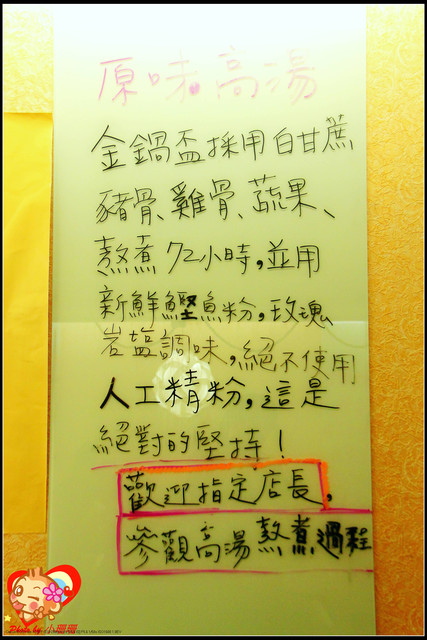 原味高湯
金鍋盃採用白甘蔗
豬骨、雞骨、蔬果、
熬煮72小時,並用
新鮮鰹魚粉,玫瑰
岩塩調味,絕不使用
人工精粉,這是
絕對的堅持!
歡迎指定店長,
參觀高湯熬煮過程
Photo by 小珊珊